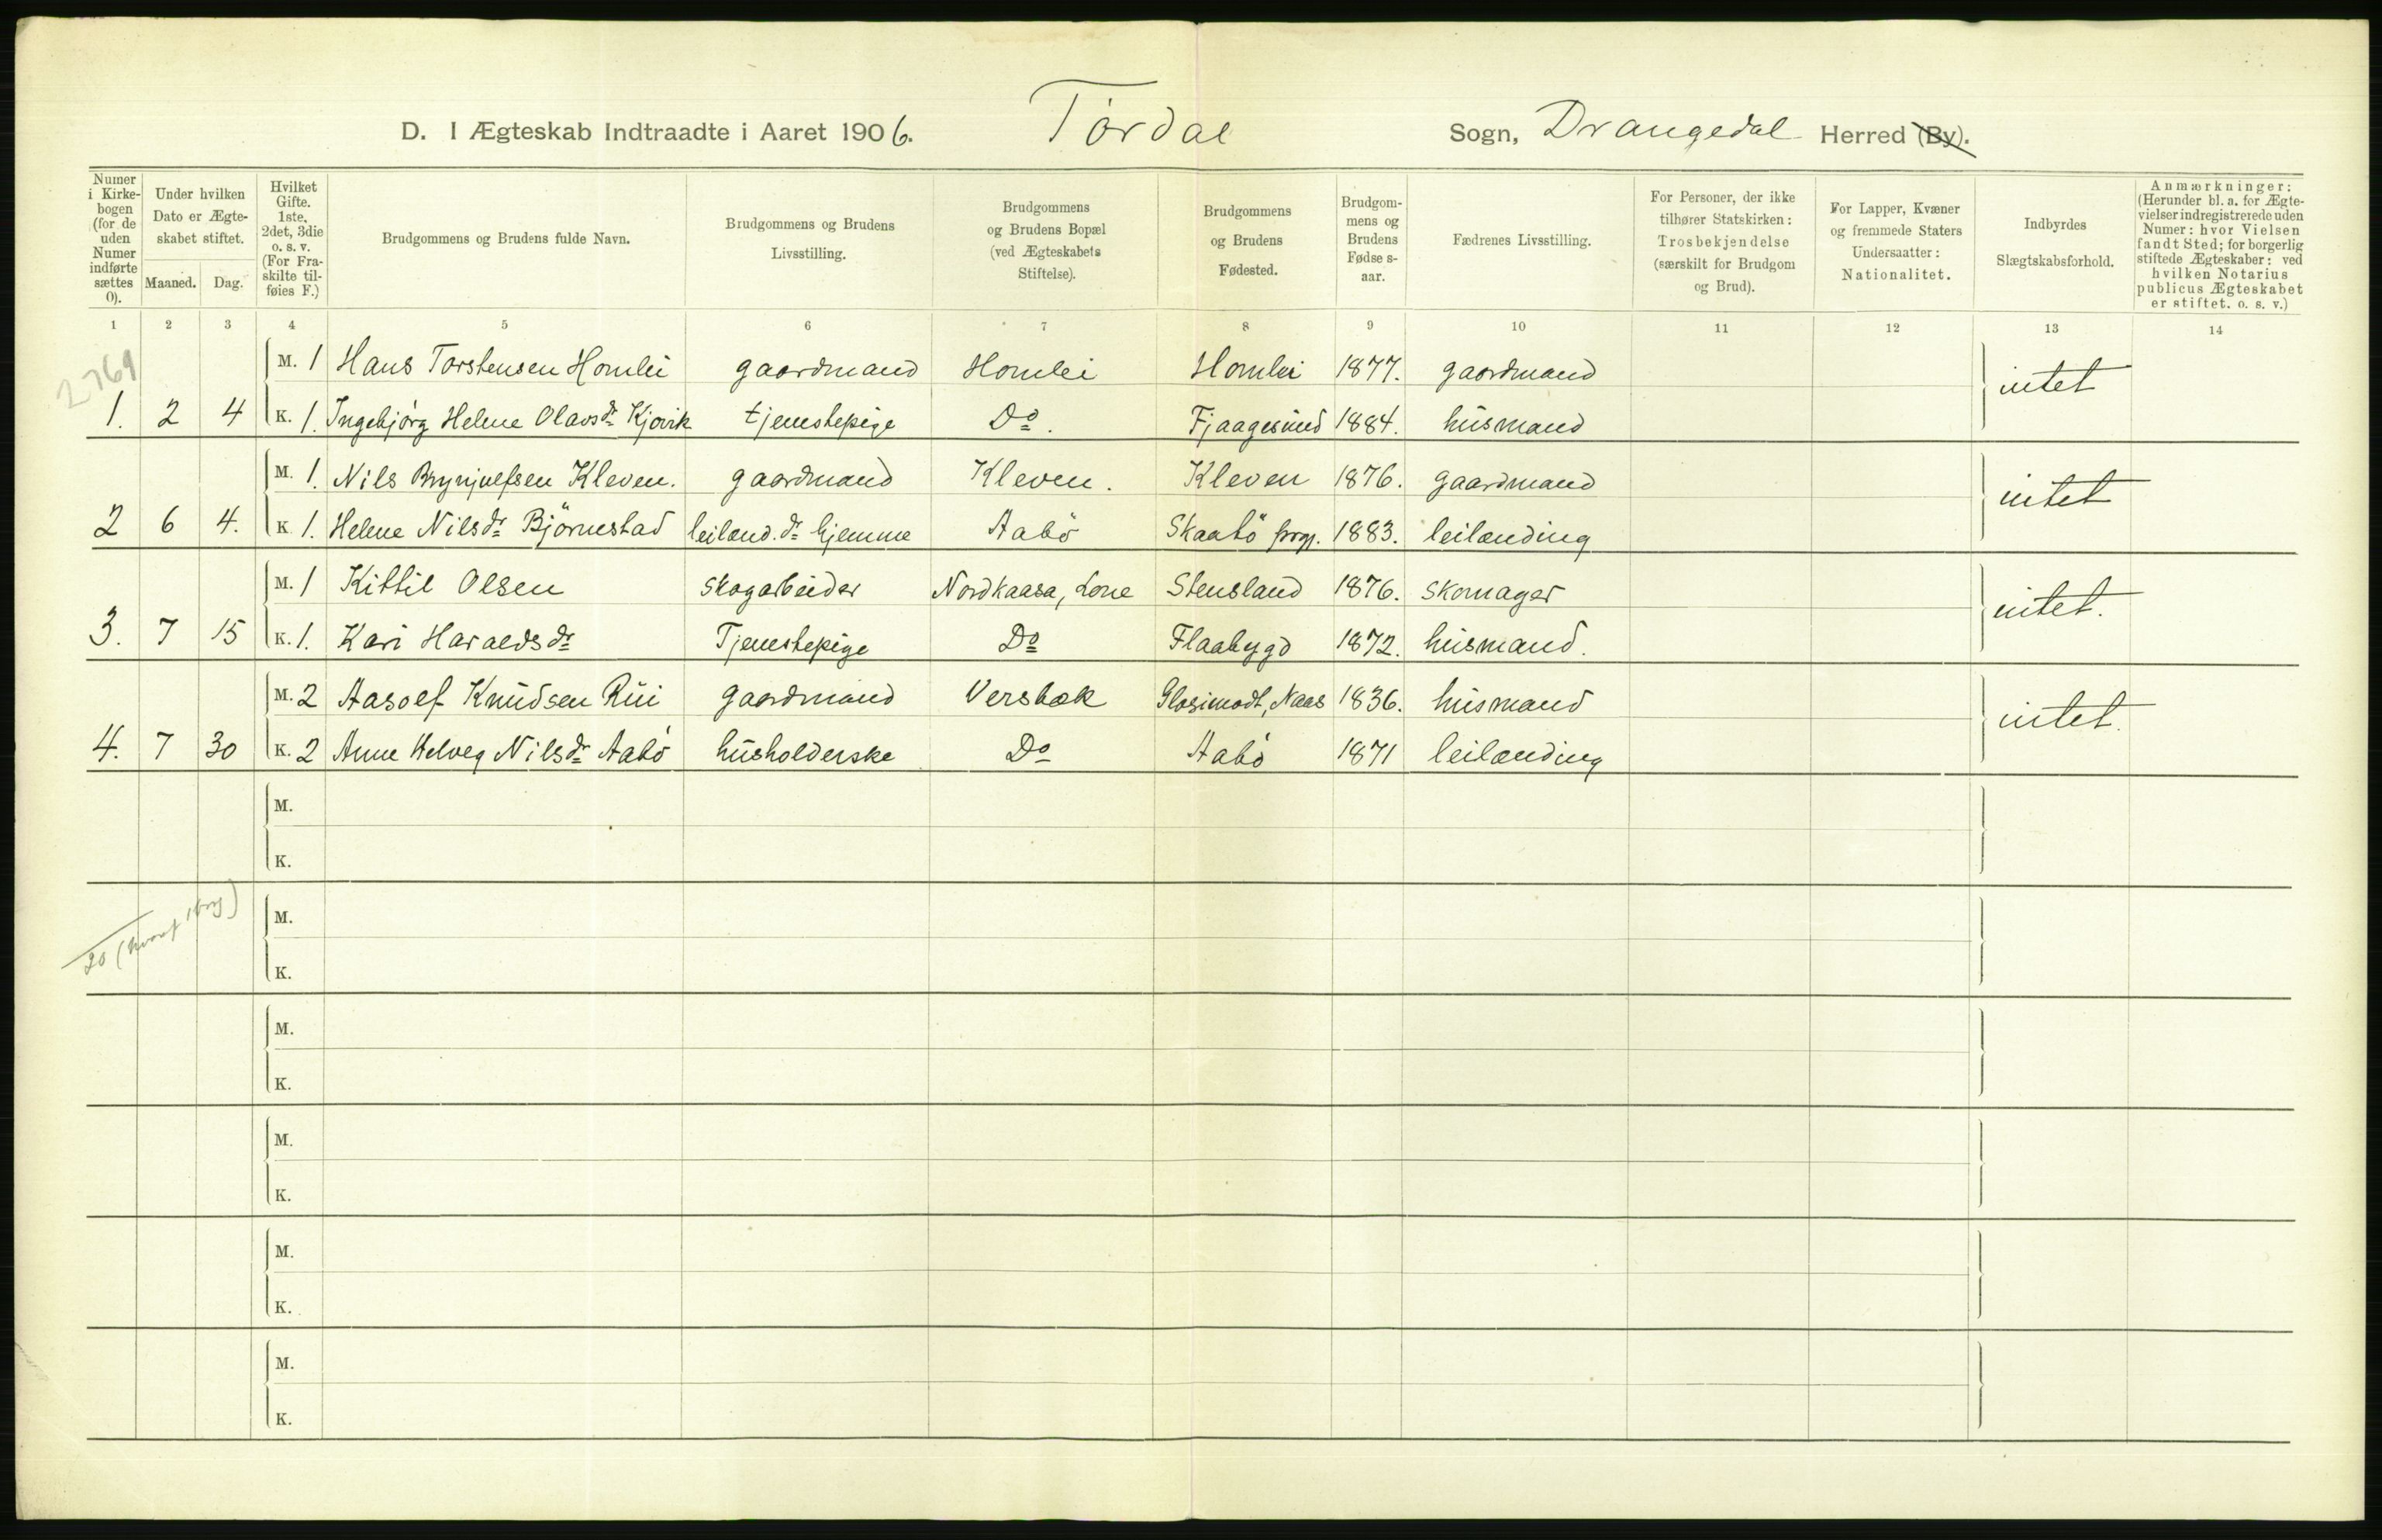 D. I Ægteskab Indtraadte i Aaret 1906. Tørdal Sogn, Drangedal Herred (By).
Numer i Kirkebogen (for de uden Numer indførte sættes 0).
Under hvilken Dato er Ægteskabet stiftet.
Maaned. Dag.
Hvilket Gifte. 1ste, 2det, 3die o. s. v. (For Fraskilte tilføies F.)
Brudgommens og Brudens fulde Navn.
Brudgommens og Brudens Livsstilling.
Brudgommens og Brudens Bopæl (ved Ægteskabets Stiftelse).
Brudgommens og Brudens Fødested.
Brudgommens og Brudens Fødselsaar.
Fædrenes Livsstilling.
For Personer, der ikke tilhører Statskirken: Trosbekjendelse (særskilt for Brudgom og Brud).
For Lapper, Kvæner og fremmede Staters Undersaatter: Nationalitet.
Indbyrdes Slægtskabsforhold.
Anmærkninger: (Herunder bl. a. for Ægtevielser indregistrerede uden Numer: hvor Vielsen fandt Sted; for borgerlig stiftede Ægteskaber: ved hvilken Notarius publicus Ægteskabet er stiftet. o. s. v.)
1 2 3 4 5 6 7 8 9 10 11 12 13 14
2769
M. 1 Hans Torstensen Homlei gaardmand Homlei Homlei 1877. gaardmand intet
1. 2 4 K. 1. Ingebjørg Helene Olavsdr Kjøvik tjenestepige Do. Fjaagesund 1884. husmand
M. 1. Nils Brynjulfsen Kleven. gaardmand Kleven. Kleven 1876. gaardmand intet
2 6 4. K 1. Helene Nilsdr Björnestad leilænd. dr hjemme Aabö Skaatö prgj. 1883. leilænding
M. 1 Kittil Olsen Skogarbeider Nordkaasa, Lone Stensland 1876. Skomager intet.
3. 7 15 K. 1. Kari Haraldsdr Tjenestepige Do Flaabygd 1872. husmand.
M. 2 Aasolf Knudsen Rui gaardmand Versbæk Glosimodt, Naas 1836. husmand intet.
4. 7 30 K. 2 Anne Helveg Nilsdr Aabö husholderske Do Aabö 1871 leilænding
M.
K.
20 (hvoraf
M.
K.
M.
K.
M.
K.
M.
K.
M.
K.